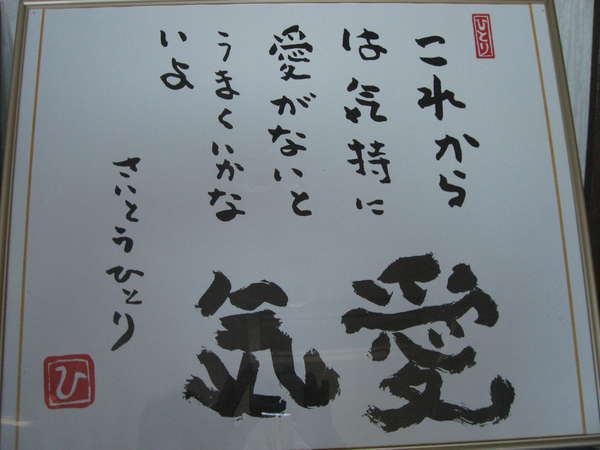 ひとり
これから
は気持に
愛がないと
うまくいかな
いよ
愛気
さいとうひとり
ひ